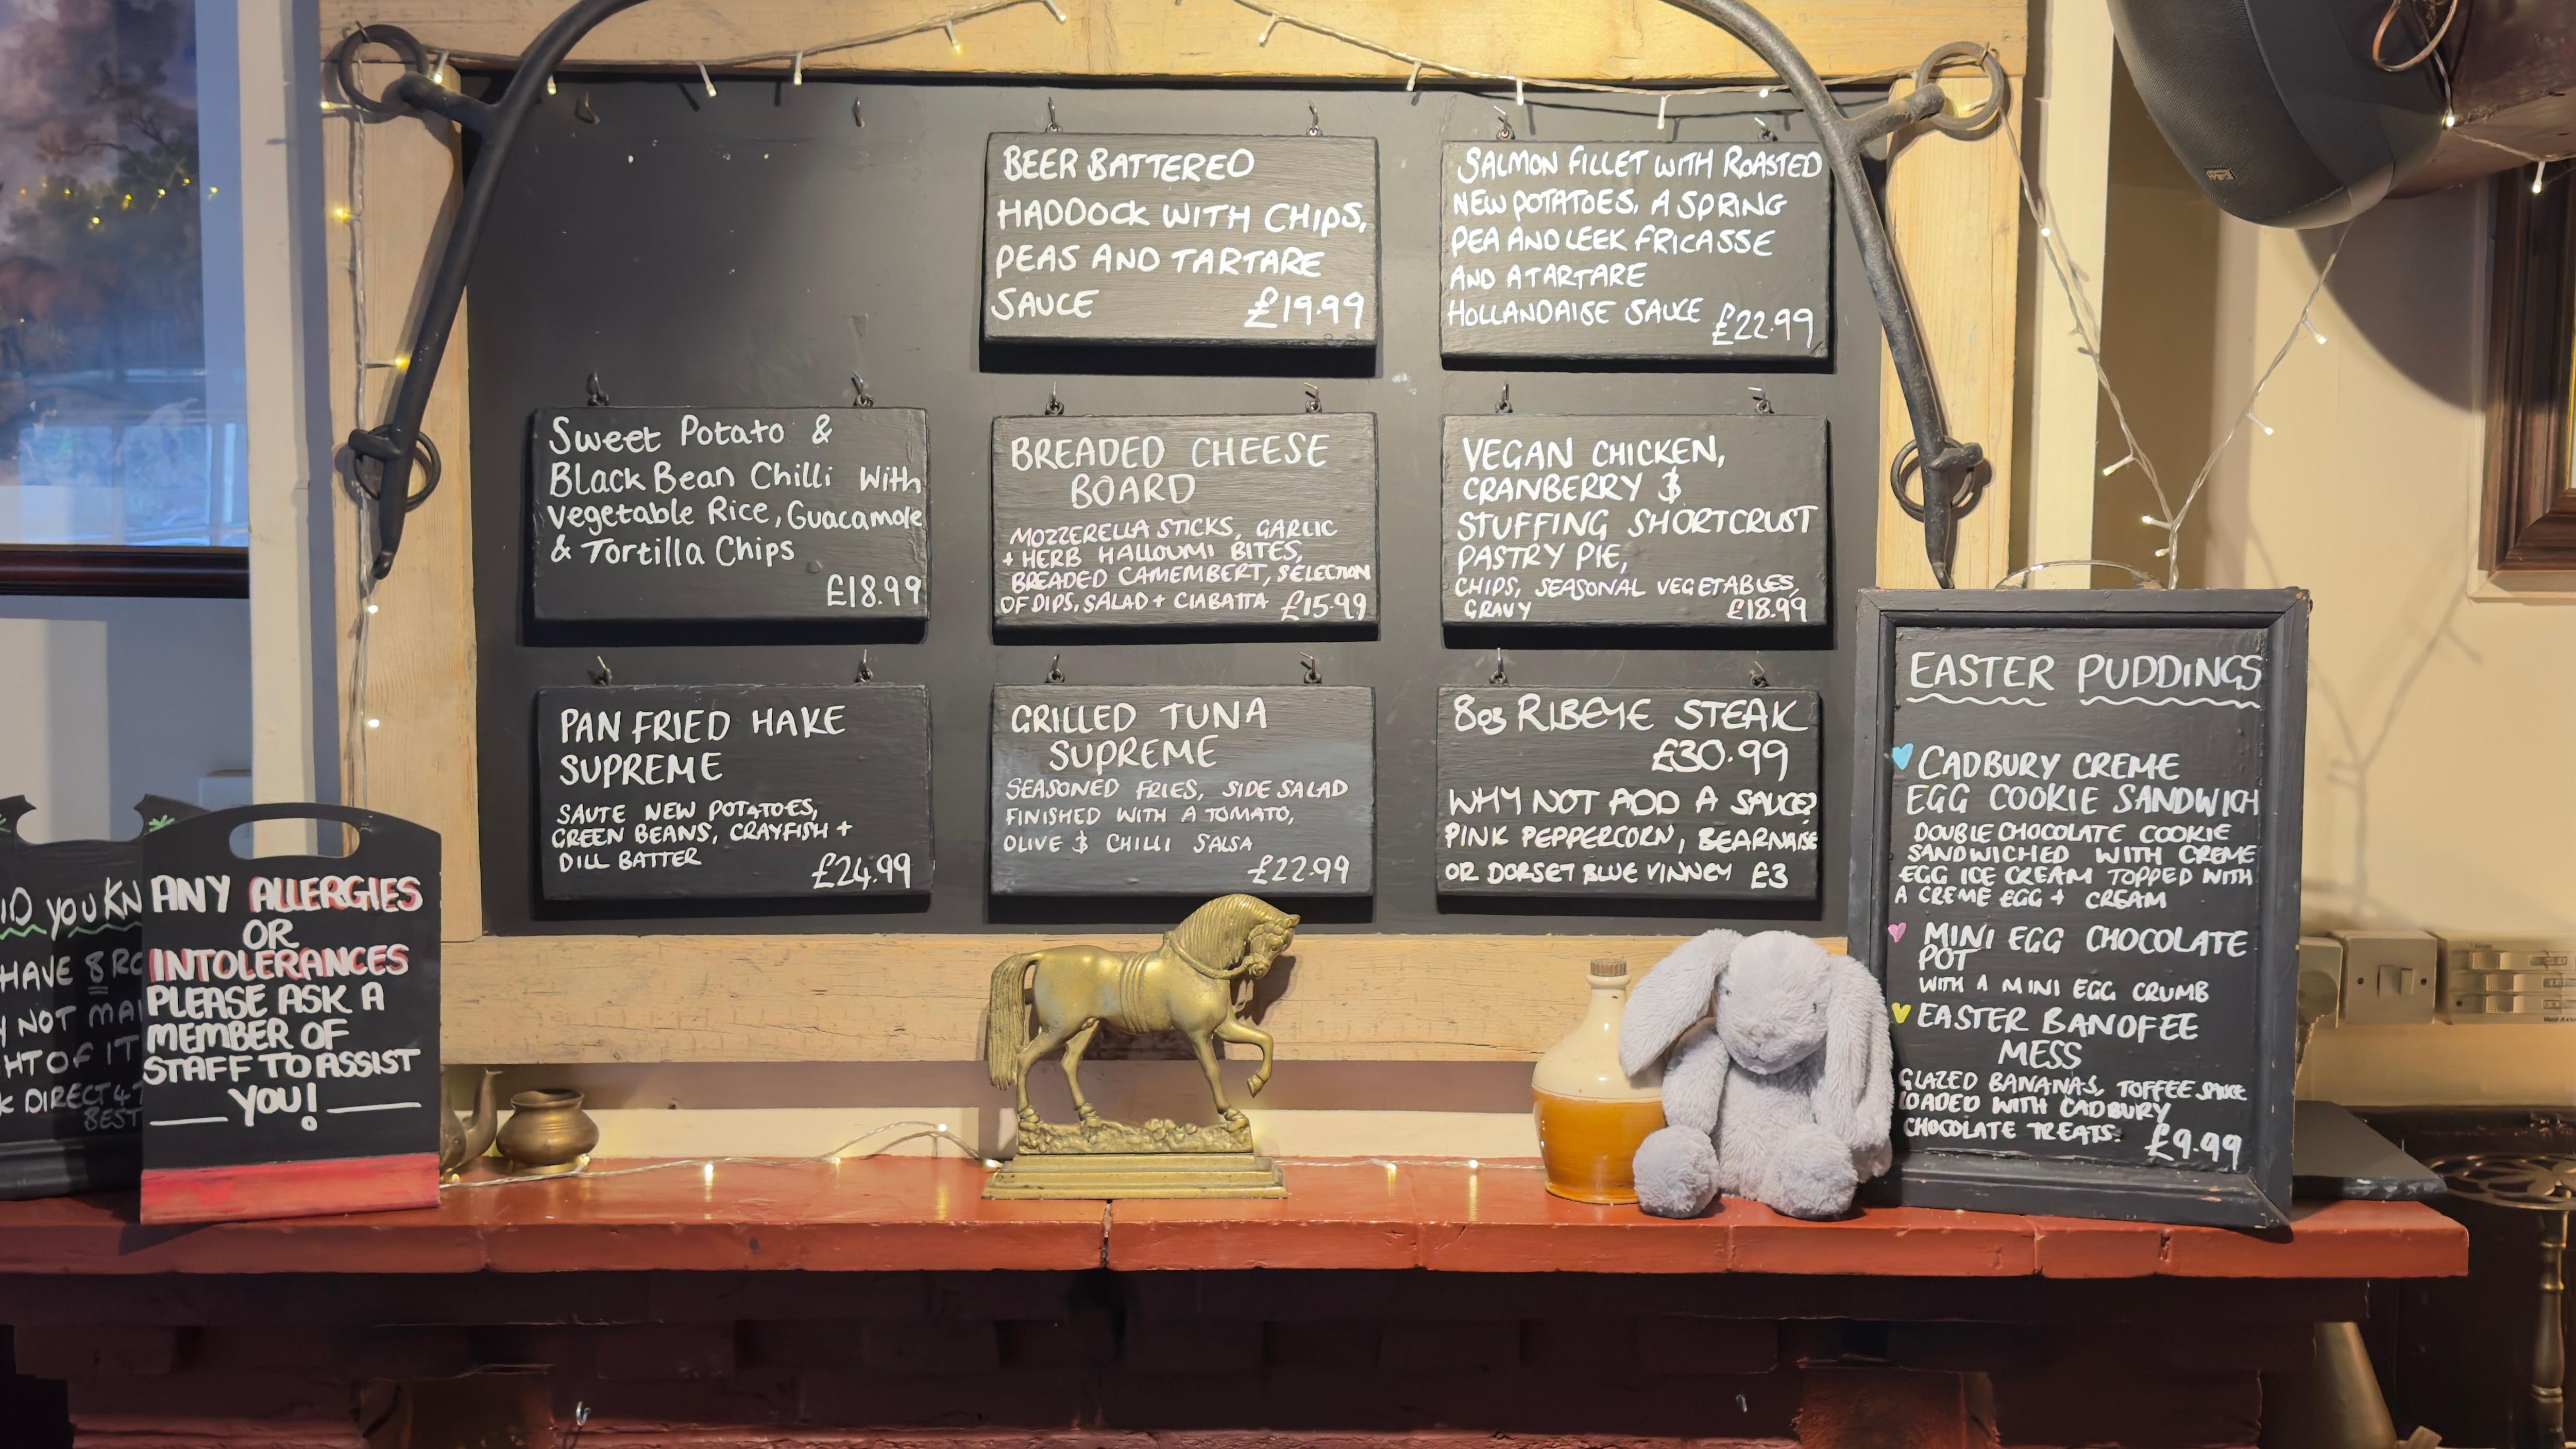 BEER BATTERED
HADDOCK WITH CHIPS,
PEAS AND TARTARE
SAUCE £19.99
SALMON FILLET WITH ROASTED
NEW POTATOES, A SPRING
PEA AND LEEK FRICASSE
AND A TARTARE
HOLLANDAISE SAUCE £22.99
Sweet Potato &
Black Bean Chilli With
Vegetable Rice, Guacamole
& Tortilla Chips
£18.99
BREADED CHEESE
BOARD
MOZZERELLA STICKS, GARLIC
+ HERB HALLOUMI BITES,
BREADED CAMEMBERT, SELECTION
OF DIPS, SALAD + CIABATTA £15.99
VEGAN CHICKEN,
CRANBERRY &
STUFFING SHORTCRUST
PASTRY PIE,
CHIPS, SEASONAL VEGETABLES,
GRAVY £18.99
PAN FRIED HAKE
SUPREME
SAUTE NEW POTATOES,
GREEN BEANS, CRAYFISH +
DILL BATTER
£24.99
GRILLED TUNA
SUPREME
SEASONED FRIES, SIDE SALAD
FINISHED WITH A TOMATO,
OLIVE & CHILLI SALSA
£22.99
8oz RIBEYE STEAK
£30.99
WHY NOT ADD A SAUCE?
PINK PEPPERCORN, BEARNAISE
OR DORSET BLUE VINNEY £3
EASTER PUDDINGS
CADBURY CREME
EGG COOKIE SANDWICH
DOUBLE CHOCOLATE COOKIE
SANDWICHED WITH CREME
EGG ICE CREAM TOPPED WITH
A CREME EGG + CREAM
MINI EGG CHOCOLATE
POT
WITH A MINI EGG CRUMB
EASTER BANOFEE
MESS
GLAZED BANANAS, TOFFEE SAUCE
LOADED WITH CADBURY
CHOCOLATE TREATS. £9.99
ANY ALLERGIES
OR
INTOLERANCES
PLEASE ASK A
MEMBER OF
STAFF TO ASSIST
YOU!
ID YOU KN
HAVE 8 RO
NOT MA
HT OF IT
K DIRECT 4
BEST